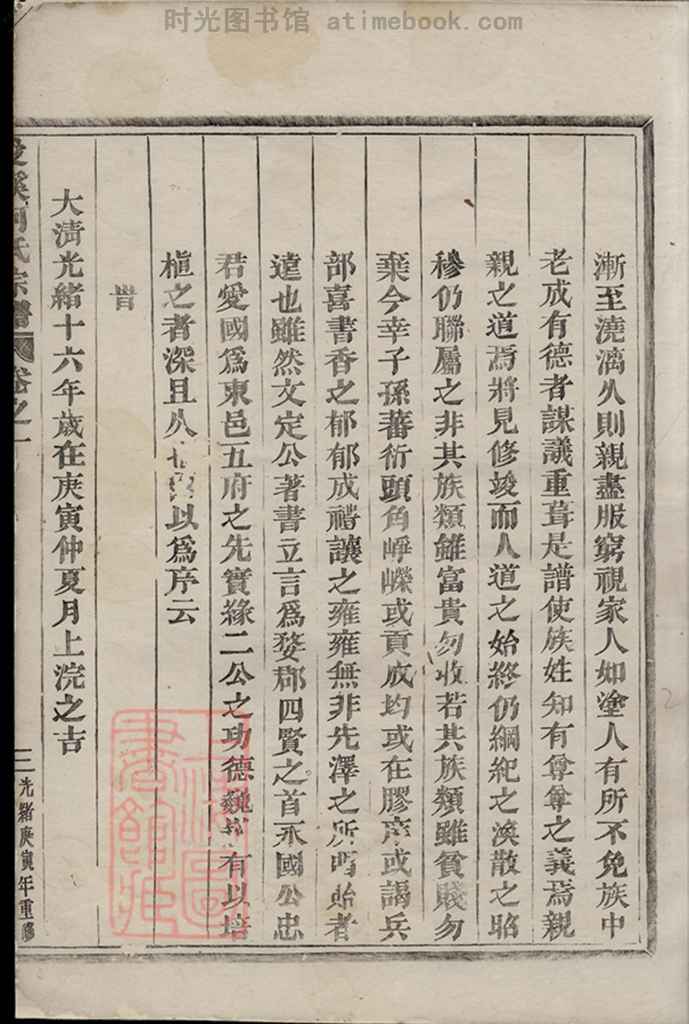 时光图书馆 atimebook.com
漸至澆漓久則親盡服窮視家人如塗人有所不免族中
老成有德者謀議重葺是譜使族姓知有尊尊之義焉親
親之道焉將見修竣而人道之始終仍綱紀之渙散之昭
穆仍聯屬之非其族類雖富貴勿收若其族類雖貧賤勿
棄今幸子孫蕃衍頭角崢嶸或貢成均或在膠庠或謁兵
部喜書香之郁郁成禮讓之雍雍無非先澤之所貽者
遠也雖然文定公著書立言爲婺郡四賢之首永國公忠
君愛國爲東邑五府之先實緣二公之功德巍 有以培
植之者深且久 以爲序云
旹
大清光緒十六年歲在庚寅仲夏月上浣之吉
溪何氏宗譜 卷之一
二 光緒庚寅年重修